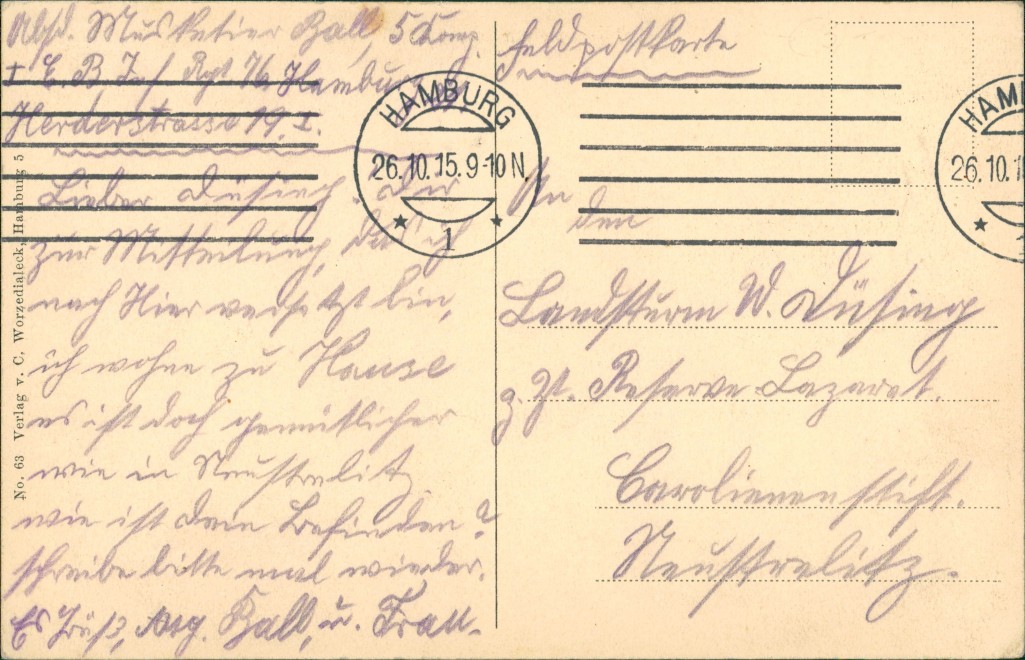 Absd. Musketier Ball, 5 Komp.
I. E. B. I. Rgt 76 Hamburg
Herderstrasse 19. I.
Lieber Düsing, dir
zur Mitteilung, daß ich
nach Hier versetzt bin,
ich wohne zu Hause
es ist doch gemütlicher
wie in Neustrelitz
wie ist dein Befinden?
schreibe bitte mal wieder.
Es Grüß, Aug. Ball, u. Frau.
No. 63 Verlag v. C. Worzedialeck, Hamburg 5
Feldpostkarte
HAMBURG
26.10.15.9-10 N.
1
HAM
26.10.1
An
den
Landsturm W. Düsing
z. Zt. Reserve Lazaret.
Carolienenstift.
Neustrelitz.